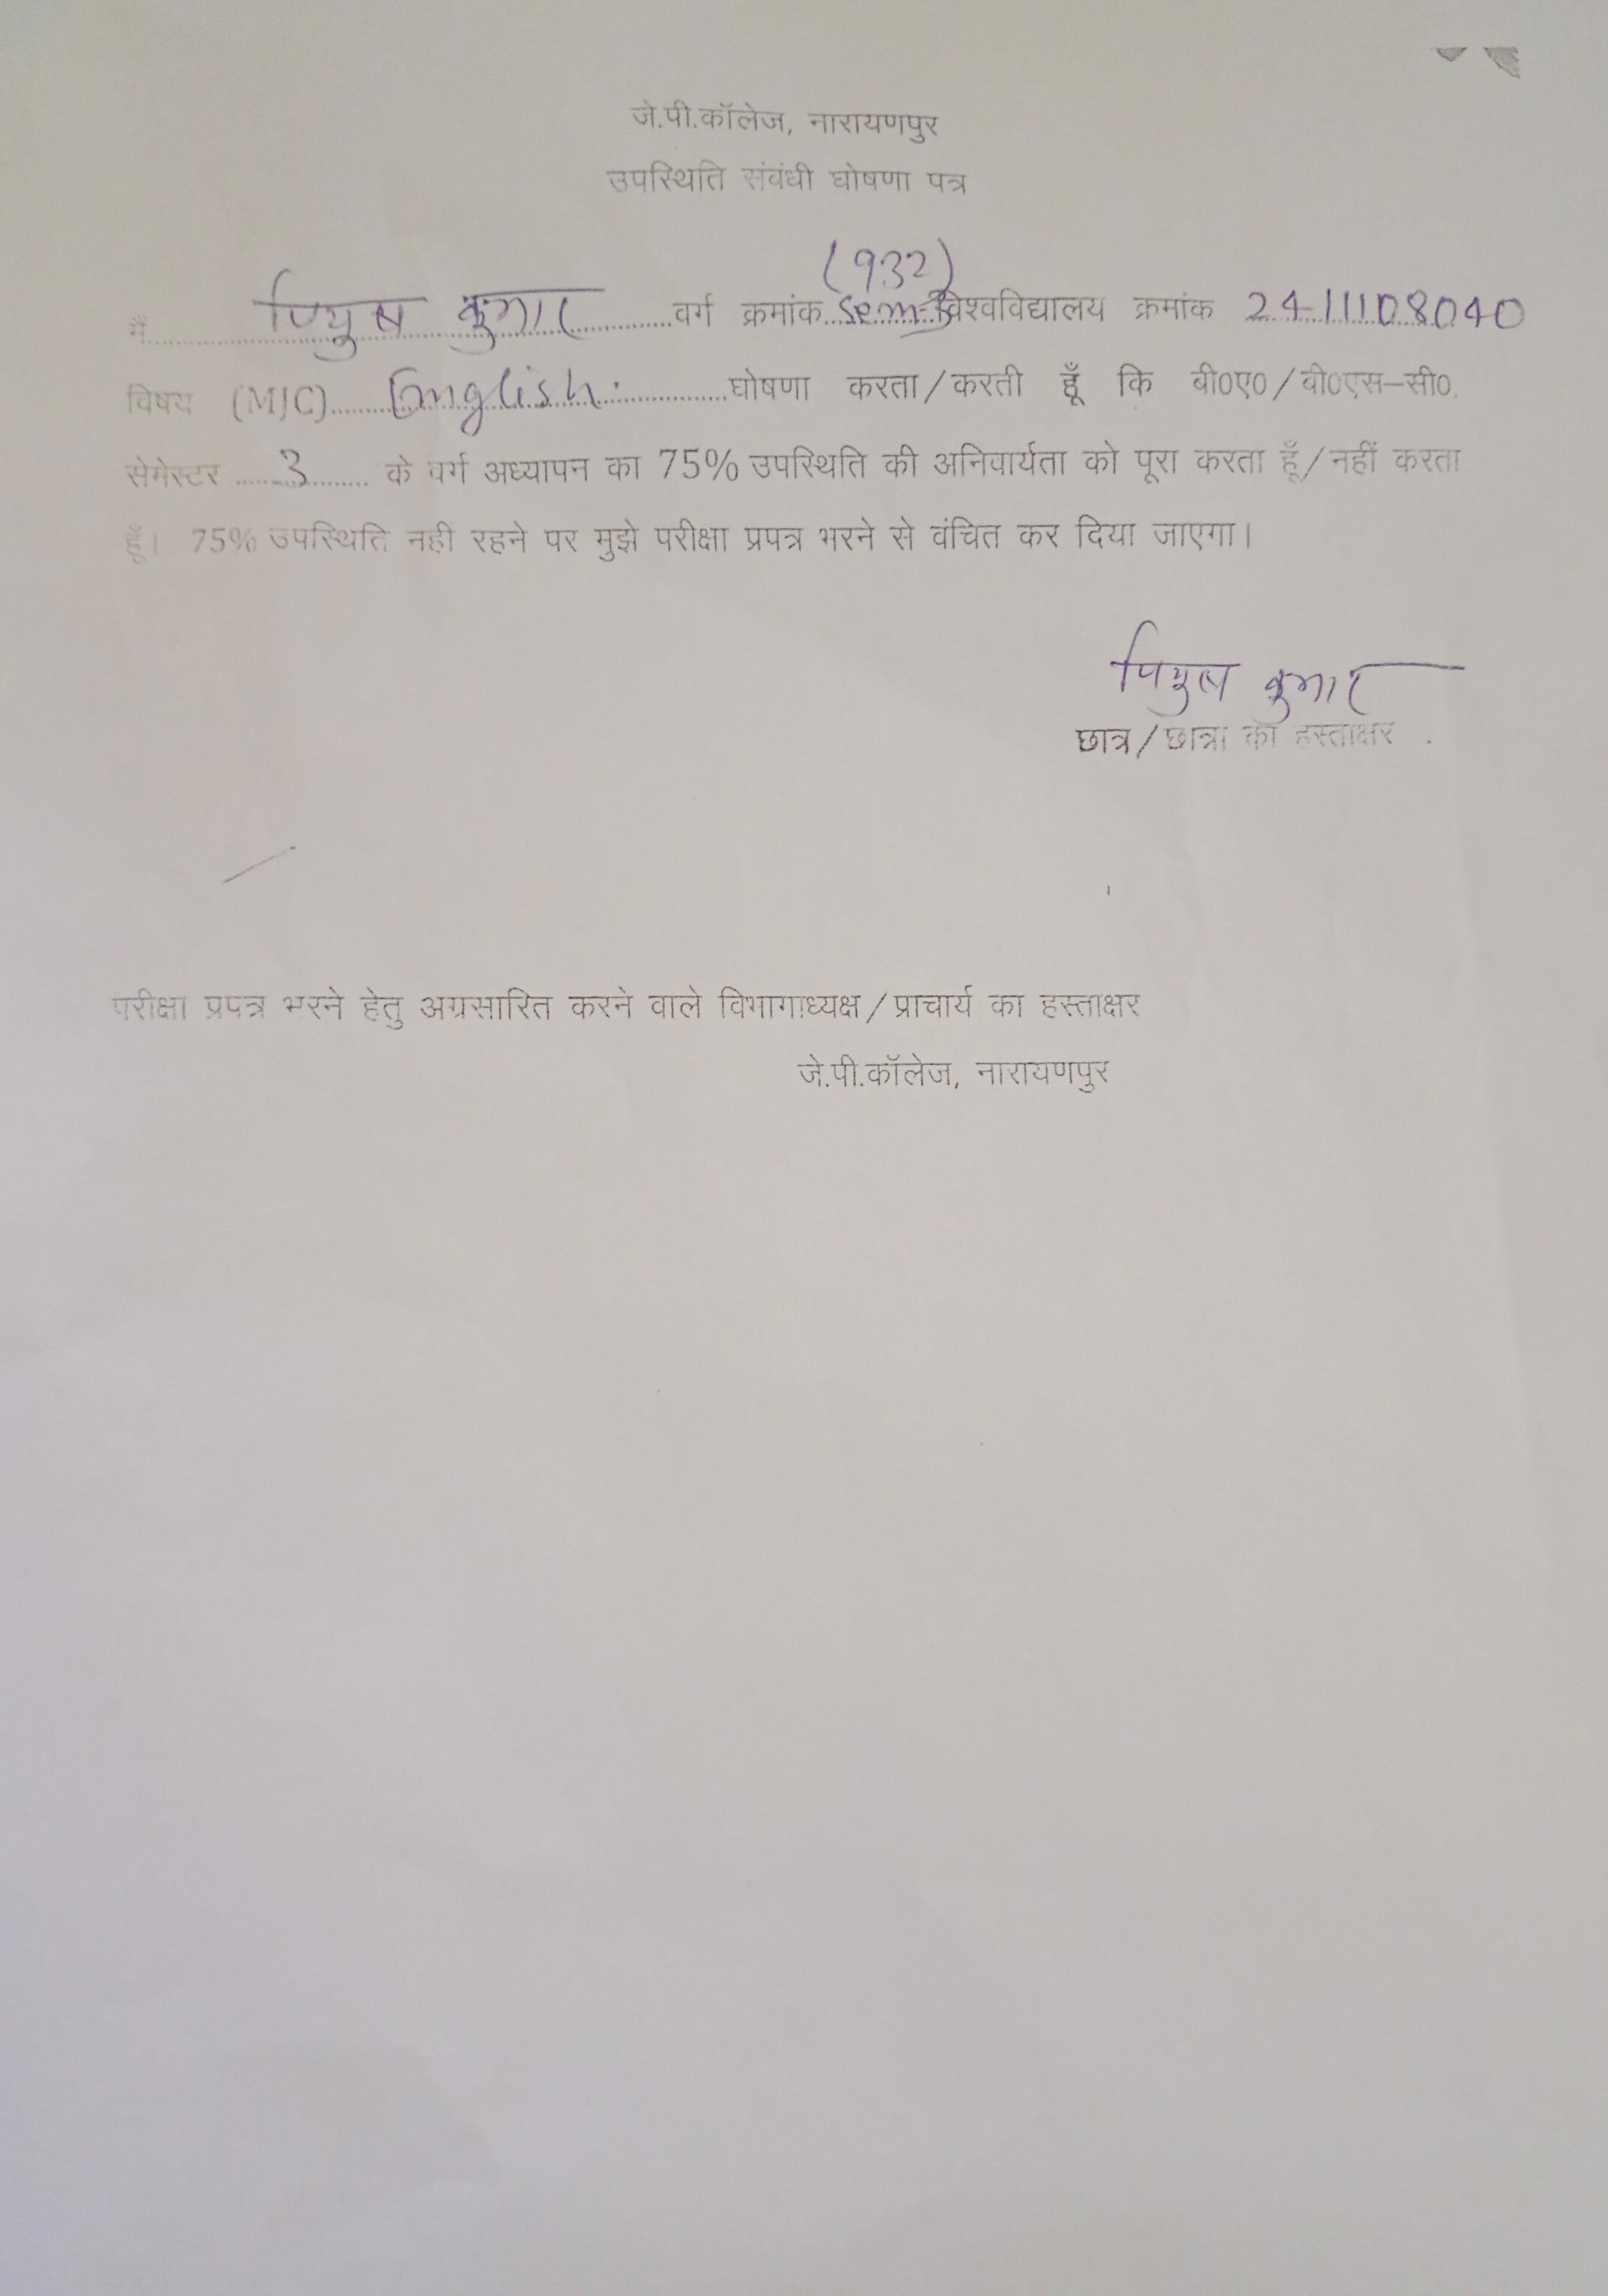 जे.पी.कॉलेज, नारायणपुर
उपस्थिति संबंधी घोषणा पत्र
(932)
मैं पियुष कुमार वर्ग क्रमांक Sem-3 विश्वविद्यालय क्रमांक 2411108040
विषय (MJC) English. घोषणा करता/करती हूँ कि बी०ए०/बी०एस–सी०.
सेमेस्टर 3 के वर्ग अध्यापन का 75% उपस्थिति की अनिवार्यता को पूरा करता हूँ/नहीं करता
हूँ। 75% उपस्थिति नही रहने पर मुझे परीक्षा प्रपत्र भरने से वंचित कर दिया जाएगा।
पियुष कुमार
छात्र/छात्रा का हस्ताक्षर
परीक्षा प्रपत्र भरने हेतु अग्रसारित करने वाले विभागाध्यक्ष/प्राचार्य का हस्ताक्षर
जे.पी.कॉलेज, नारायणपुर